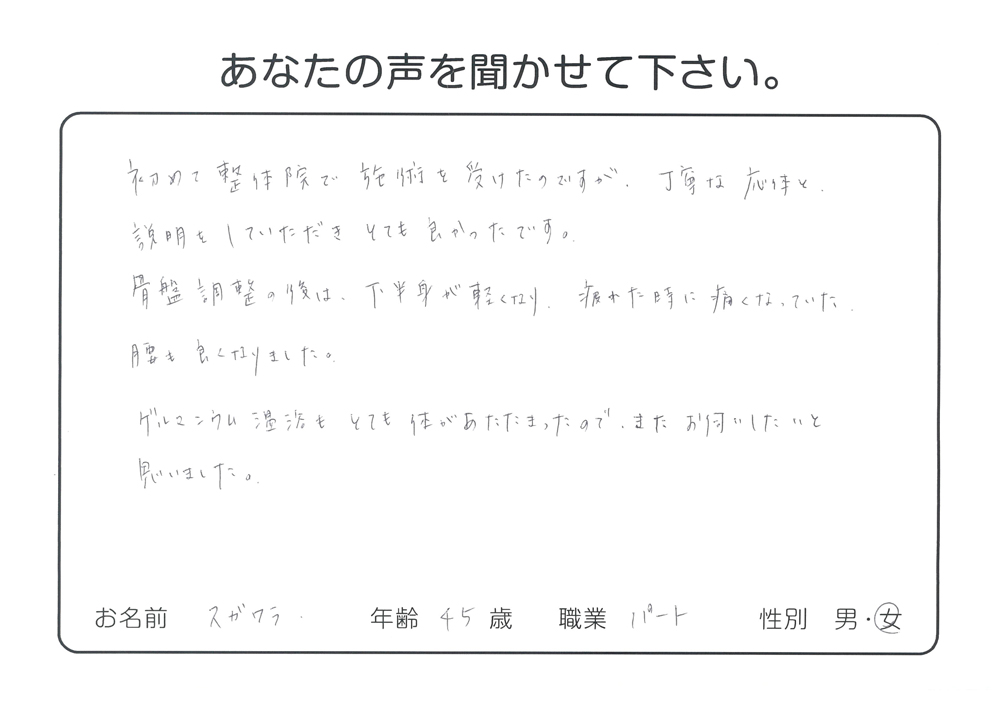 あなたの声を聞かせて下さい。
初めて整体院で施術を受けたのですが、丁寧な応体と、
説明をしていただきとても良かったです。
骨盤調整の後は、下半身が軽くなり、疲れた時に痛くなっていた、
腰も良くなりました。
ゲルマニウム温浴もとても体があたたまったので、またお伺いしたいと
思いました。
お名前 スガワラ 年齢 45 歳 職業 パート 性別 男・女